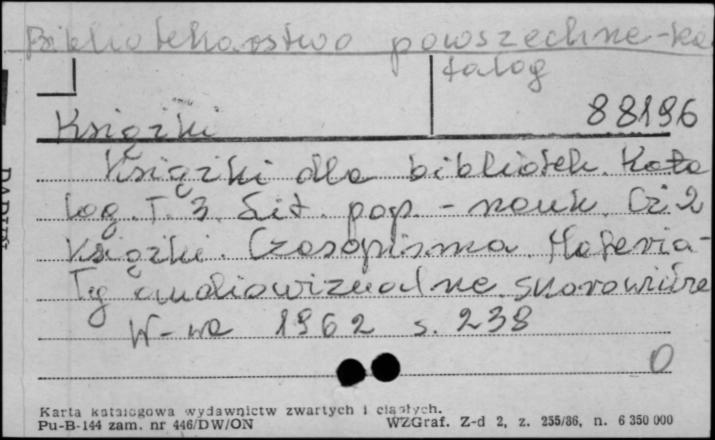 Bibliotekarstwo powszechne-ka
talog
88196
Książki
Książki dla bibliotek. Kata
log. T. 3. Lit. pop. - nauk. Cz. 2
Książki. Czasopisma. Materia-
ły audiowizualne.
W-wa 1962 s. 238
0
Karta katalogowa wydawnictw zwartych i ciągłych.
Pu-B-144 zam. nr 446/DW/ON WZGraf. Z-d 2, z. 255/86, n. 6 350 000